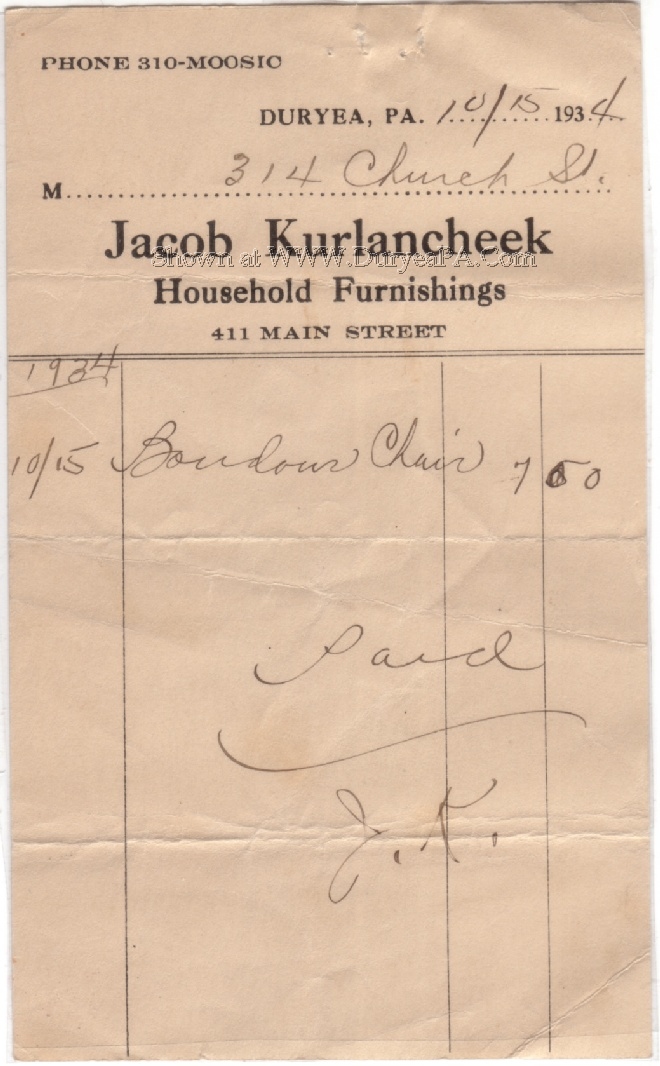 PHONE 310-MOOSIC
DURYEA, PA. 10/15 1934
M 314 Church St.
Jacob Kurlancheek
Shown at WWW.DuryeaPA.Com
Household Furnishings
411 MAIN STREET
1934
10/15 Boudour Chair 7 50
Paid
J. K.